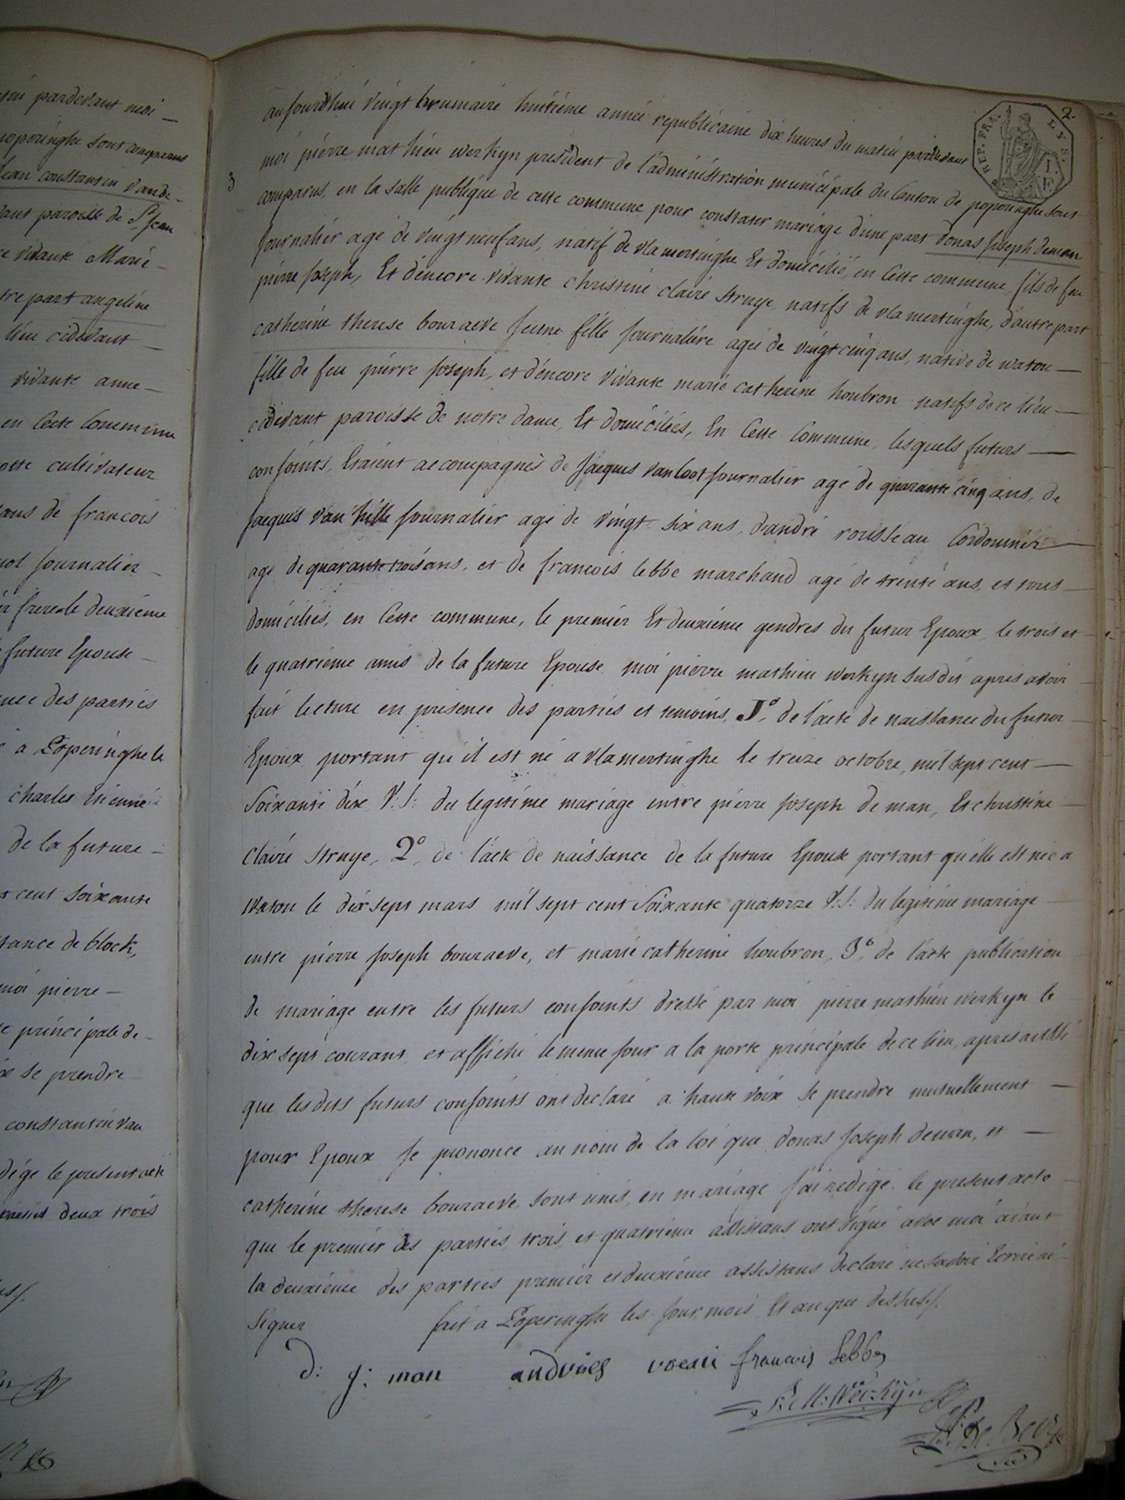 moi pardevant moi
poperinghe sont comparus
Jean constantin vande-
dant paroisse de St Jean
e vivante Marie-
tre part angeline
lieu cidevant
vivante anne-
en Cette Commune
otte cultivateur
ans de francois
not journalier-
frere le deuxième
future Epouse
nce des parties
a Poperinghe le
charles Etienne
de la future-
cent soixante
tance de block,
moi pierre-
e principale de-
se prendre
constantin van
dige le present acte
deux trois
2
REP. FRA. LYS.
3
aujourdhui vingt brumaire huitiéme année republicaine dix heures du matin pardevant
moi pierre mathieu werkyn president de l'administration municipale du Canton de poperinghe sont
comparus en la salle publique de cette commune pour constater mariage d'une part donas Joseph Deman
Journalier agé de vingt neuf ans, natif de vlamertinghe Et domicilié, en Cette commune fils de feu
pierre Joseph, Et d'encore vivante christine claire Struye natifs de vlamertinghe, d'autre part
catherine therese bouraeve Jeune fille Journaliére agée de vingt cinq ans, native de watou —
fille de feu pierre Joseph, et d'encore vivante marie catherine houbron natifs de ce lieu —
cidevant paroisse de notre dame, Et domiciliés, En Cette Commune, lesquels futurs —
conjoints, Etaient accompagnés de Jacques vanloot journalier agé de quarante cinq ans, de
Jacques van hille journalier agé de vingt six ans, d'andré rousseau Cordonnier —
agé de quarante trois ans, et de francois lebbe marchand agé de trente ans, et tous
domiciliés, en Cette commune, le premier Et deuxiéme gendres du futur Epoux le trois et
le quatriéme amis de la future Epouse moi pierre mathieu werkyn susdit apres avoir
fait lecture en presence des parties et temoins, 1° de l'acte de naissance du futur
Epoux portant qu'il est né a vlamertinghe le treize octobre, mil sept cent —
Soixante dix V.S: du legitime mariage entre pierre Joseph de man, Et christine
Claire Struye, 2° de l'acte de naissance de la future Epouse portant qu'elle est née a
watou le dix sept mars mil sept cent Soixante quatorze V.S: du legitime mariage
entre pierre Joseph bouraeve, et marie catherine houbron, 3° de l'acte publication
de mariage entre les futurs conjoints dressé par moi pierre mathieu werkyn le
dix sept courant et affiché le meme jour a la porte principale de ce lieu, apres aussi
que les dits futurs conjoints ont declaré a haute voix Se prendre mutuellement —
pour Epoux Je prononce au nom de la loi que donas Joseph deman, et —
catherine therese bouraeve sont unis en mariage J'ai redigé le present acte
que le premier des parties trois, et quatriéme assistans ont signé avec moi aiant
la deuxieme des parties premier et deuxiéme assistans declaré ne savoir Ecrire ni
Signer fait a Poperinghe les jour, mois Et an que dessus/.
d: j: man andries roeau francois Lebbe
P: M: Werkijn
De Beir